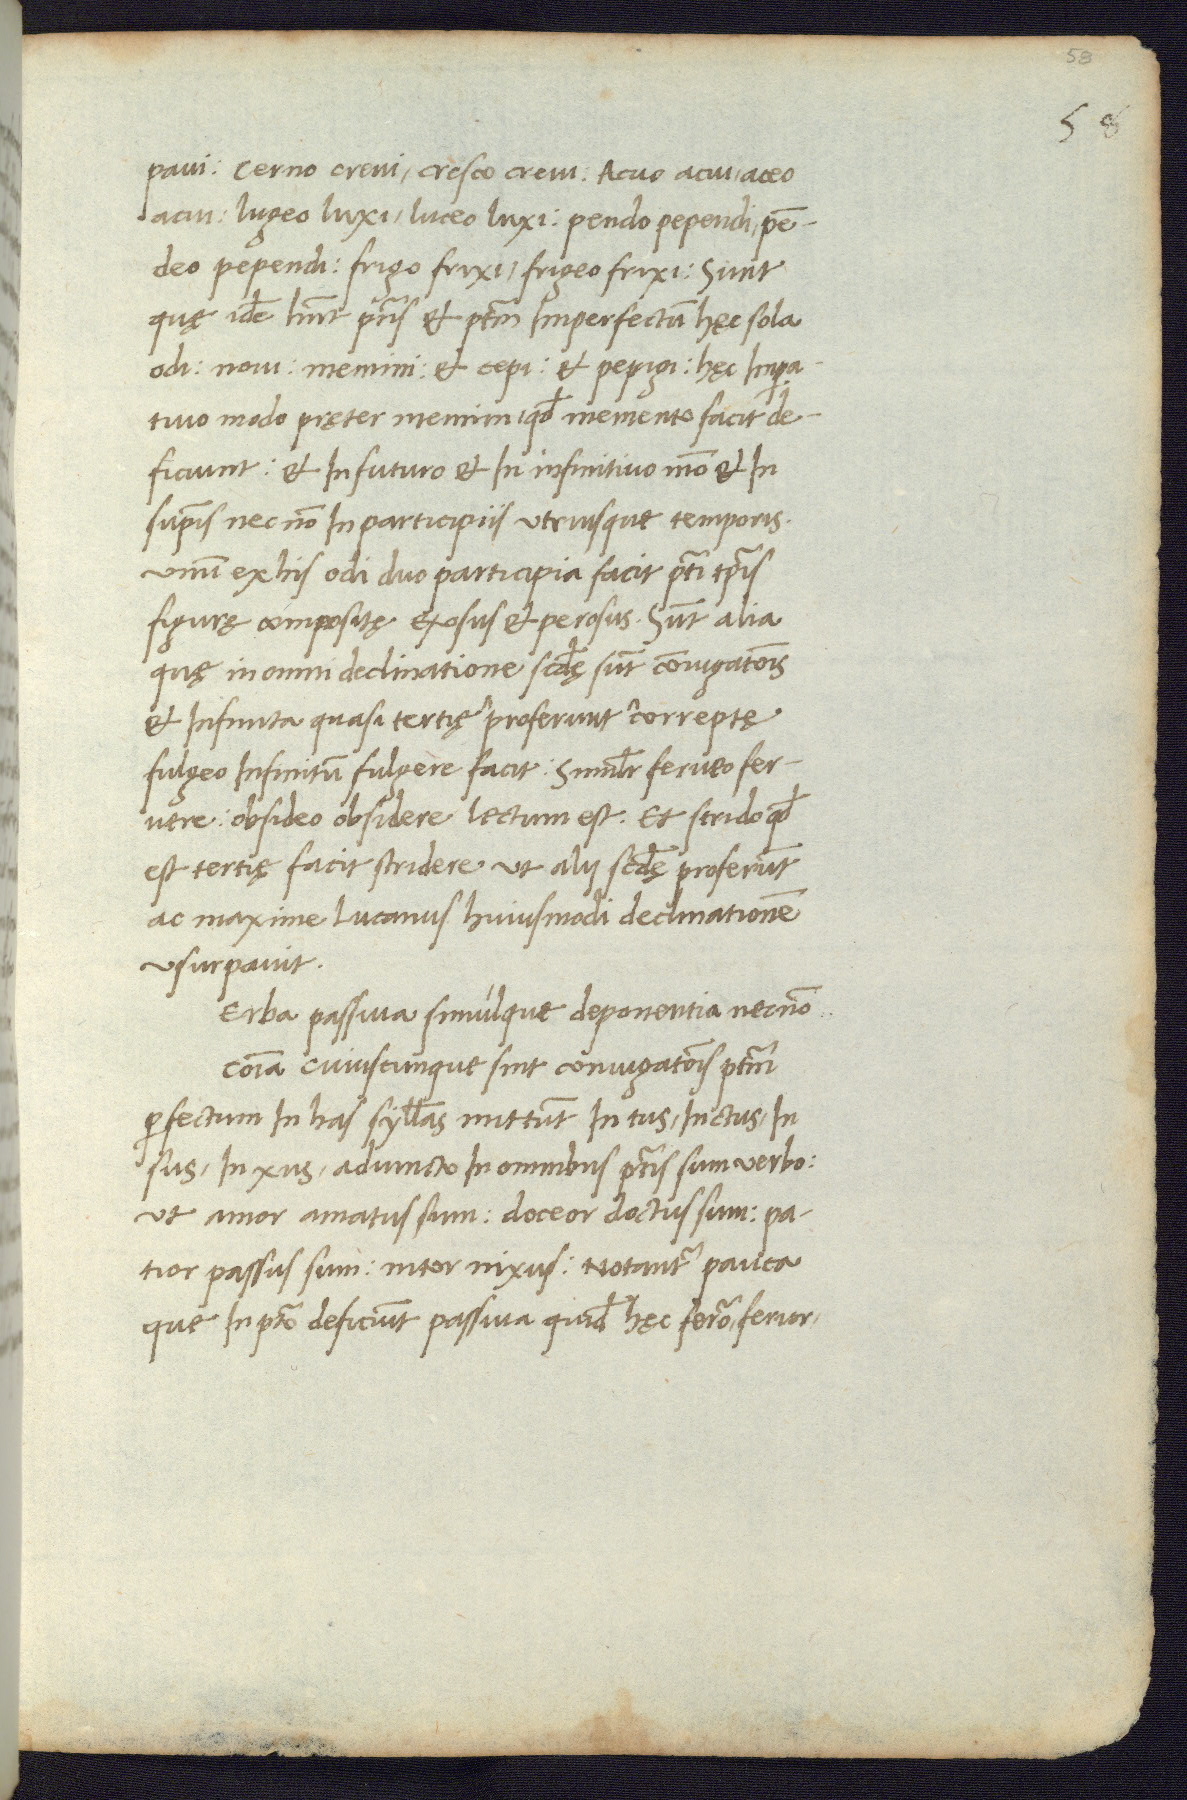 58
58
paui: Cerno creui, cresco creui: Acuo acui, aceo
acui: lugeo luxi, luceo luxi: pendo pependi, pē-
deo pependi: frigo frixi, frigeo frixi: Sunt
quę idē hn̄t pn̄tis et ptm̄ Imperfectū hęc sola
odi: noui: memini: et cepi: et pepigi: hęc Impa-
tiuo modo pręter memini, qd̄ memento facit de-
ficiunt: et In futuro et In infinitiuo mō et In
supīs nec nō In participiis vtriusque temporis.
vnū ex his odi duo participia facit pt̄i tp̄is
figurę compositę exosus et perosus. Sūt alia
quę in omni declinatione scd̄ę sūt coniugatōis
et Infinita quasi tertię proferunt correptę
fulgeo Infinitū fulgere facit: Similr̄ ferueo fer-
uere: obsideo obsidere lectum est. Et strido qd̄
est tertię facit stridere vt alij scd̄ę proferūt
ac maxime Lucanus huiusmodi declinationē
vsurpauit.
Erba passiua simulque deponentia necnō
cōia cuiuscunque sint coniugatōis ptm̄
ꝑfectum In has syll̄as mittūt In tus, In ctus, In
sus, In xus, adiuncto In omnibus pt̄is sum verbo:
vt amor amatus sum: doceor doctus sum: pa-
tior passus sum: nitor nixus: Notant᷑ pauca
que In pt̄o deficiūt passiua quid̄ hęc ferō, ferior,